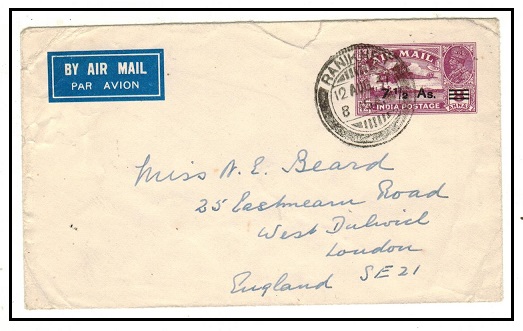 BY AIR MAIL
PAR AVION
AIR MAIL
7 1/2 As.
INDIA POSTAGE
12 AUG
8
Miss N. E. Beard
25 Eastmearn Road
West Dulwich
London
England SE21